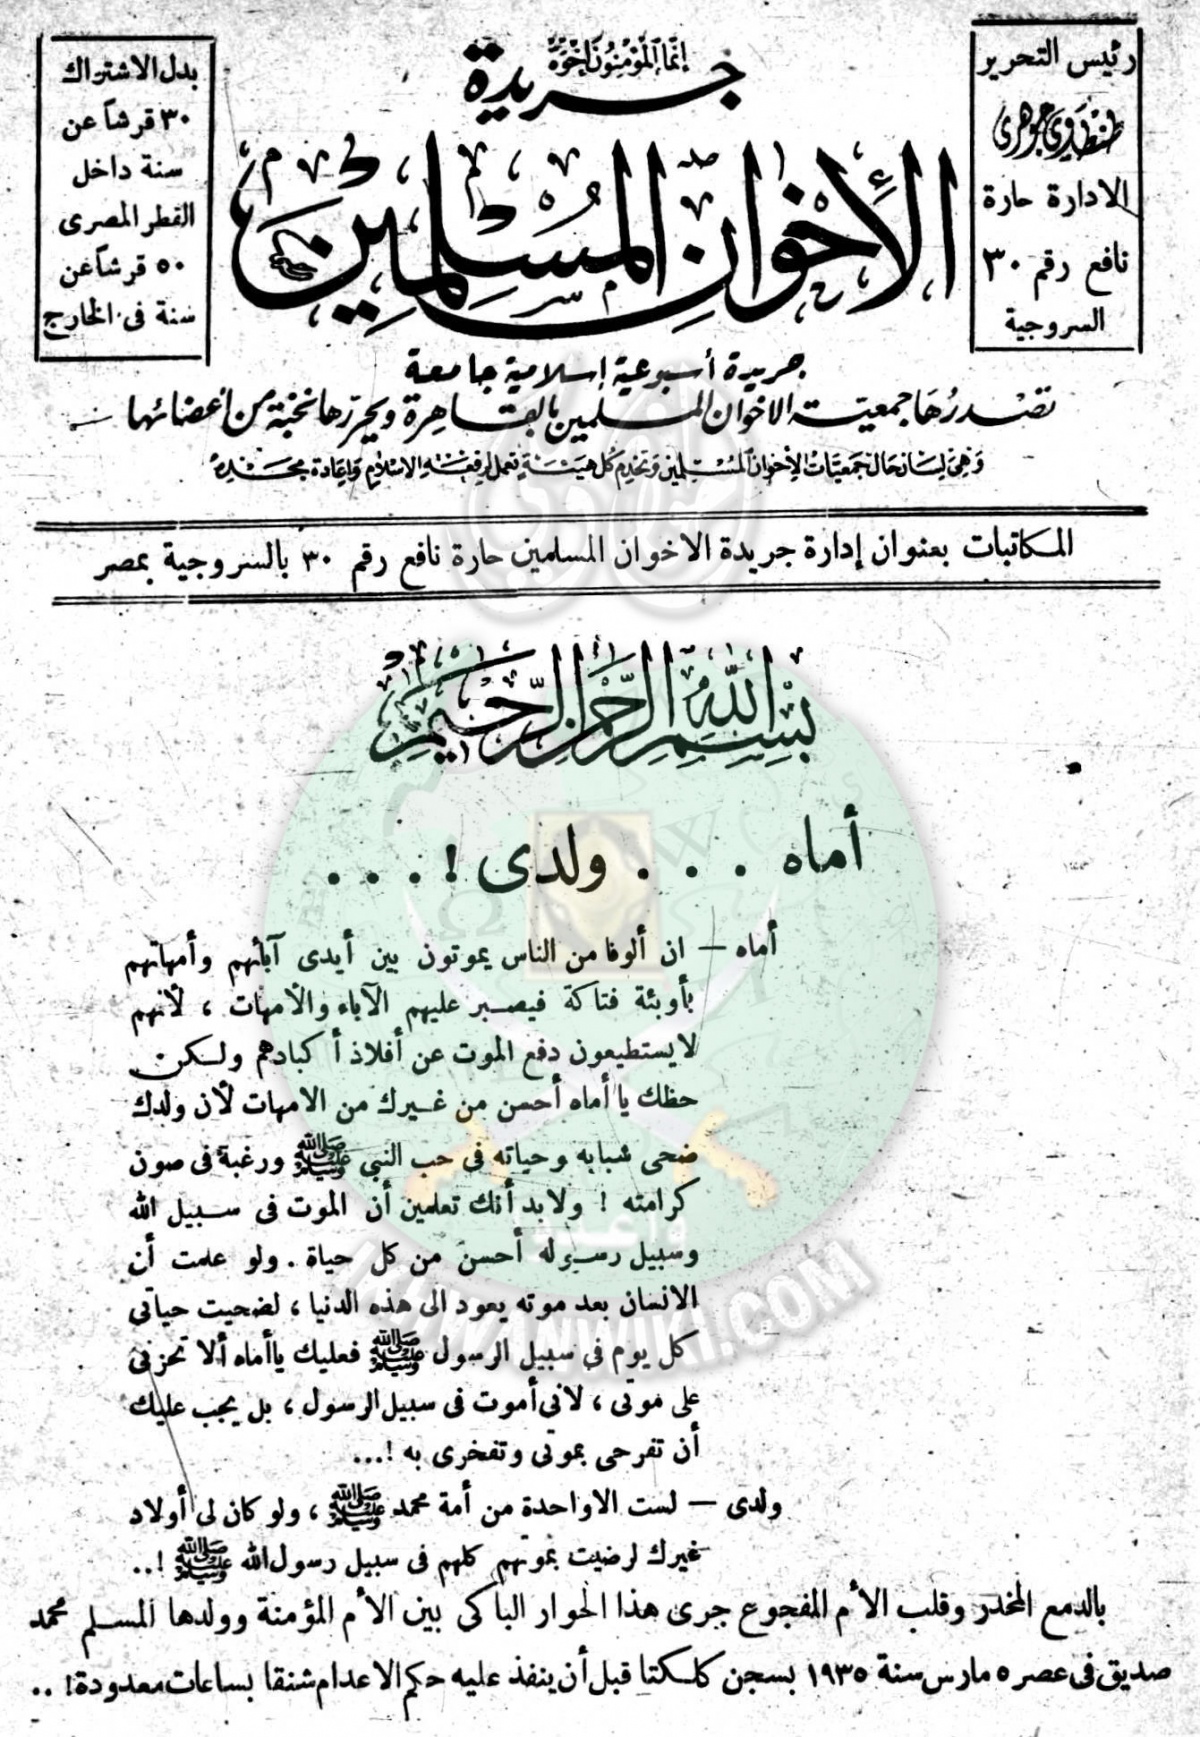 رئيس التحرير
طنطاوى جوهرى
الادارة حارة
نافع رقم ٣٠
السروجية
إنما المؤمنون إخوة
جريدة
الإخوان المسلمين
بدل الاشتراك
٣٠ قرشاً عن
سنة داخل
القطر المصرى
٥٠ قرشاً عن
سنة فى الخارج
جريدة أسبوعية إسلامية جامعة
تصدرها جمعية الاخوان المسلمين بالقاهرة ويحررها نخبة من أعضائها
وهى لسان حال جمعيات الإخوان المسلمين وتخدم كل هيئة تعمل لرفعة الاسلام وإعادة مجده
المكاتبات بعنوان إدارة جريدة الاخوان المسلمين حارة نافع رقم ٣٠ بالسروجية بمصر
بسم الله الرحمن الرحيم
أماه . . . ولدى ! . . .
أماه — ان ألوفا من الناس يموتون بين أيدى آبائهم وأمهاتهم
بأوبئة فتاكة فيصبر عليهم الآباء والأمهات ، لأنهم
لا يستطيعون دفع الموت عن أفلاذ أكبادهم ولكن
حظك يا أماه أحسن من غيرك من الامهات لأن ولدك
ضحى شبابه وحياته فى حب النبي ﷺ ورغبة فى صون
كرامته ! ولا بد أنك تعلمين أن الموت فى سبيل الله
وسبيل رسوله أحسن من كل حياة . ولو علمت أن
الانسان بعد موته يعود الى هذه الدنيا ، لضحيت حياتى
كل يوم في سبيل الرسول ﷺ فعليك يا أماه ألا تحزنى
على موتى ، لانى أموت فى سبيل الرسول ، بل يجب عليك
أن تفرحى بموتى وتفخرى به ! ...
ولدى — لست الا واحدة من أمة محمد ﷺ ، ولو كان لى أولاد
غيرك لرضيت بموتهم كلهم فى سبيل رسول الله ﷺ ! ..
بالدمع المخدر وقلب الأم المفجوع جرى هذا الحوار الباكى بين الأم المؤمنة وولدها المسلم محمد
صديق فى عصر ٥ مارس سنة ١٩٣٥ بسجن كلكتا قبل أن ينفذ عليه حكم الاعدام شنقا بساعات معدودة ! ..
واعدوا
IKHWANWIKI.COM